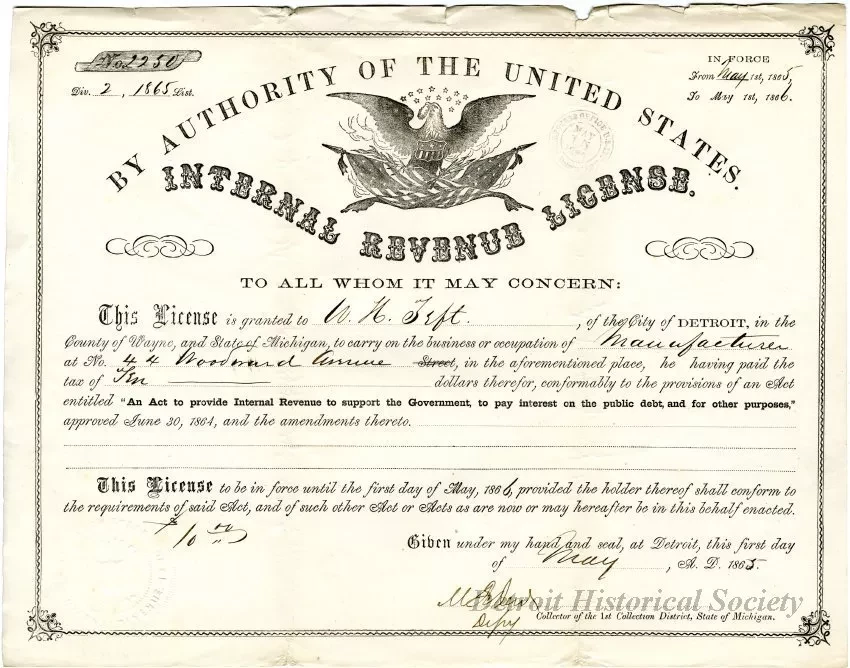 No. 2250
Div. 2, 1865 List.
IN FORCE
From May 1st, 1865,
To May 1st, 1866.
BY AUTHORITY OF THE UNITED STATES.
INTERNAL REVENUE LICENSE.
TO ALL WHOM IT MAY CONCERN:
This License is granted to W. H. Tefft, of the City of DETROIT, in the
County of Wayne, and State of Michigan, to carry on the business or occupation of Manufacturer
at No. 44 Woodward Avenue Street, in the aforementioned place, he having paid the
tax of Ten dollars therefor, conformably to the provisions of an Act
entitled "An Act to provide Internal Revenue to support the Government, to pay interest on the public debt, and for other purposes,"
approved June 30, 1864, and the amendments thereto.
This License to be in force until the first day of May, 1866, provided the holder thereof shall conform to
the requirements of said Act, and of such other Act or Acts as are now or may hereafter be in this behalf enacted.
$10.00
Given under my hand and seal, at Detroit, this first day
of May, A. D. 1865.
Depy
Collector of the 1st Collection District, State of Michigan.
Detroit Historical Society